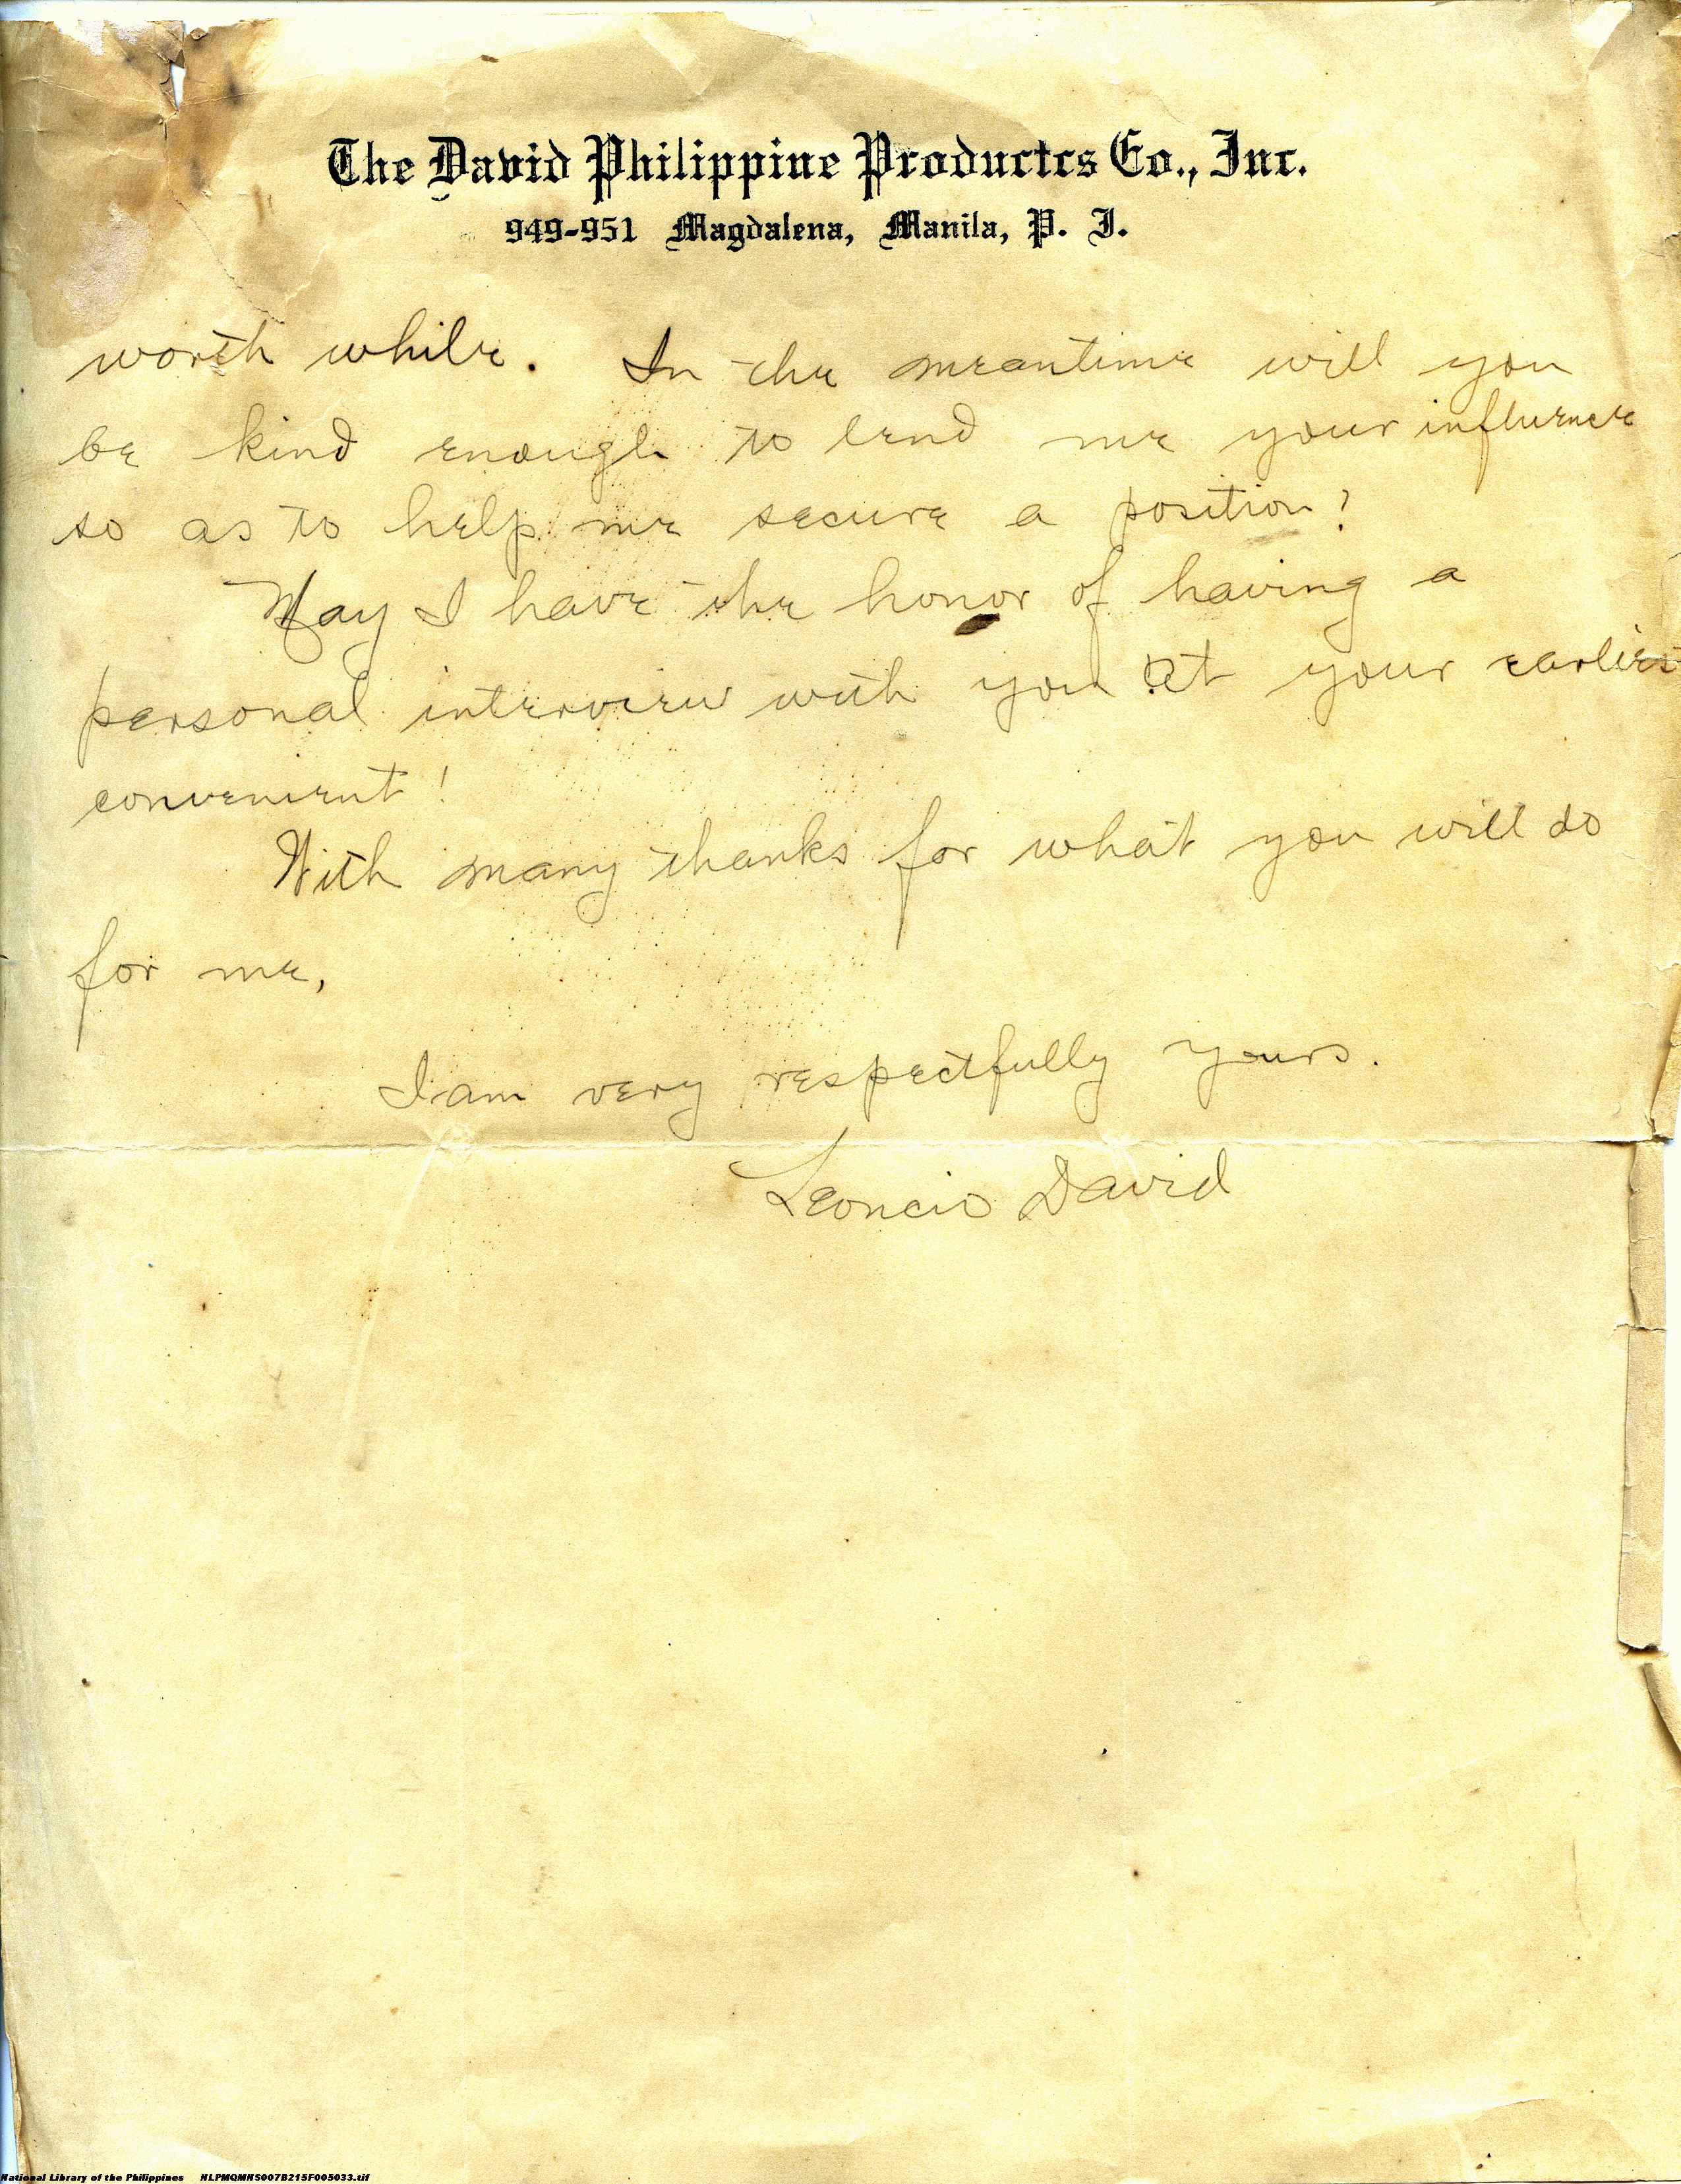 The David Philippine Productcs Co., Inc.
949-951 Magdalena, Manila, P. I.
worth while. In the meantime will you
be kind enough to lend me your influence
so as to help me secure a position?
May I have the honor of having a
personal interview with you at your earliest
convenient!
With many thanks for what you will do
for me,
I am very respectfully yours.
Leoncio David
National Library of the Philippines NLPMQMNS007B215F005033.tif